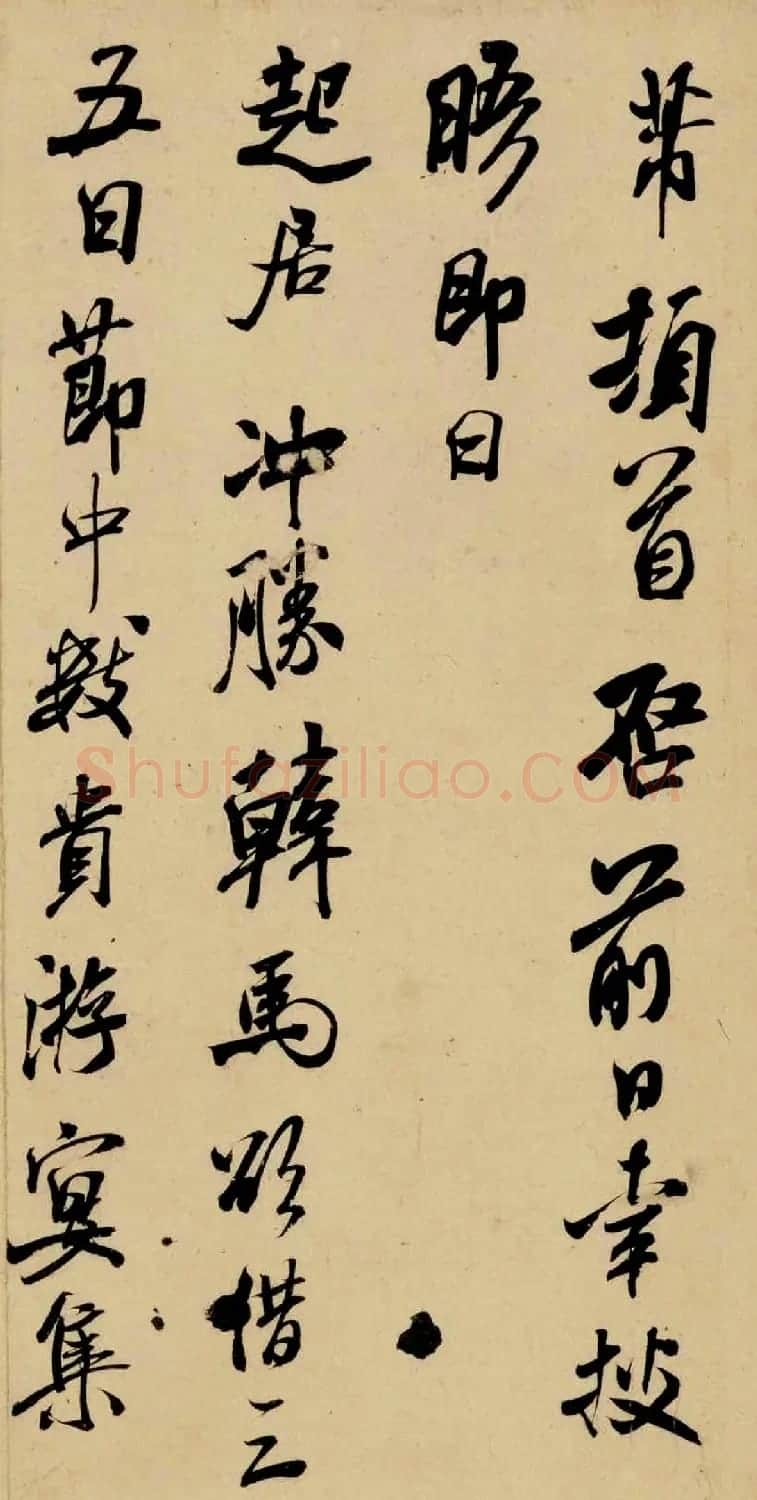 芾頓首啓前日幸披
晤即日
起居冲勝韓馬欲借三
五日節中數貴游宴集
Shufaziliao.COM